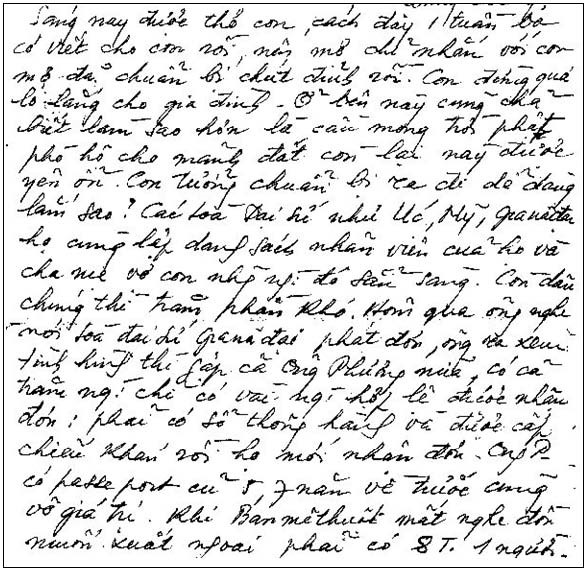 Sáng nay được thơ con, cách đây 1 tuần ba
có viết cho con rồi, nay mợ chỉ nhắn với con
mợ đã chuẩn bị chút đỉnh rồi. Con đừng quá
lo lắng cho gia đình. Ở bên này cũng chả
biết làm sao hơn là cầu mong trời phật
phò hộ cho mảnh đất còn lại này được
yên ổn. Con tưởng chuẩn bị ra đi dễ dàng
lắm sao? Các toà Đại sứ như Úc, Mỹ,
họ cũng lập dang sách nhân viên của họ và
cha mẹ vợ con những ng. đó sẵn sàng. Còn dân
chúng thì trăm phần khó. Hôm qua ông nghe
nói toà đại sứ Granada phát đơn, ông ra xem
tình hình thì gặp cả ông Phương nữa, có cả
trăm ng. chỉ có vài ng. hợp lệ được nhận
đơn: phải có số thông hành và được cấp
chiếu khán rồi họ mới nhận đơn. Ông P.
có passeport cũ 5, 7 năm về trước cũng
vô giá trị. Khi Banmêthuột mất nghe đồn
muốn xuất ngoại phải có 8 T. 1 người.